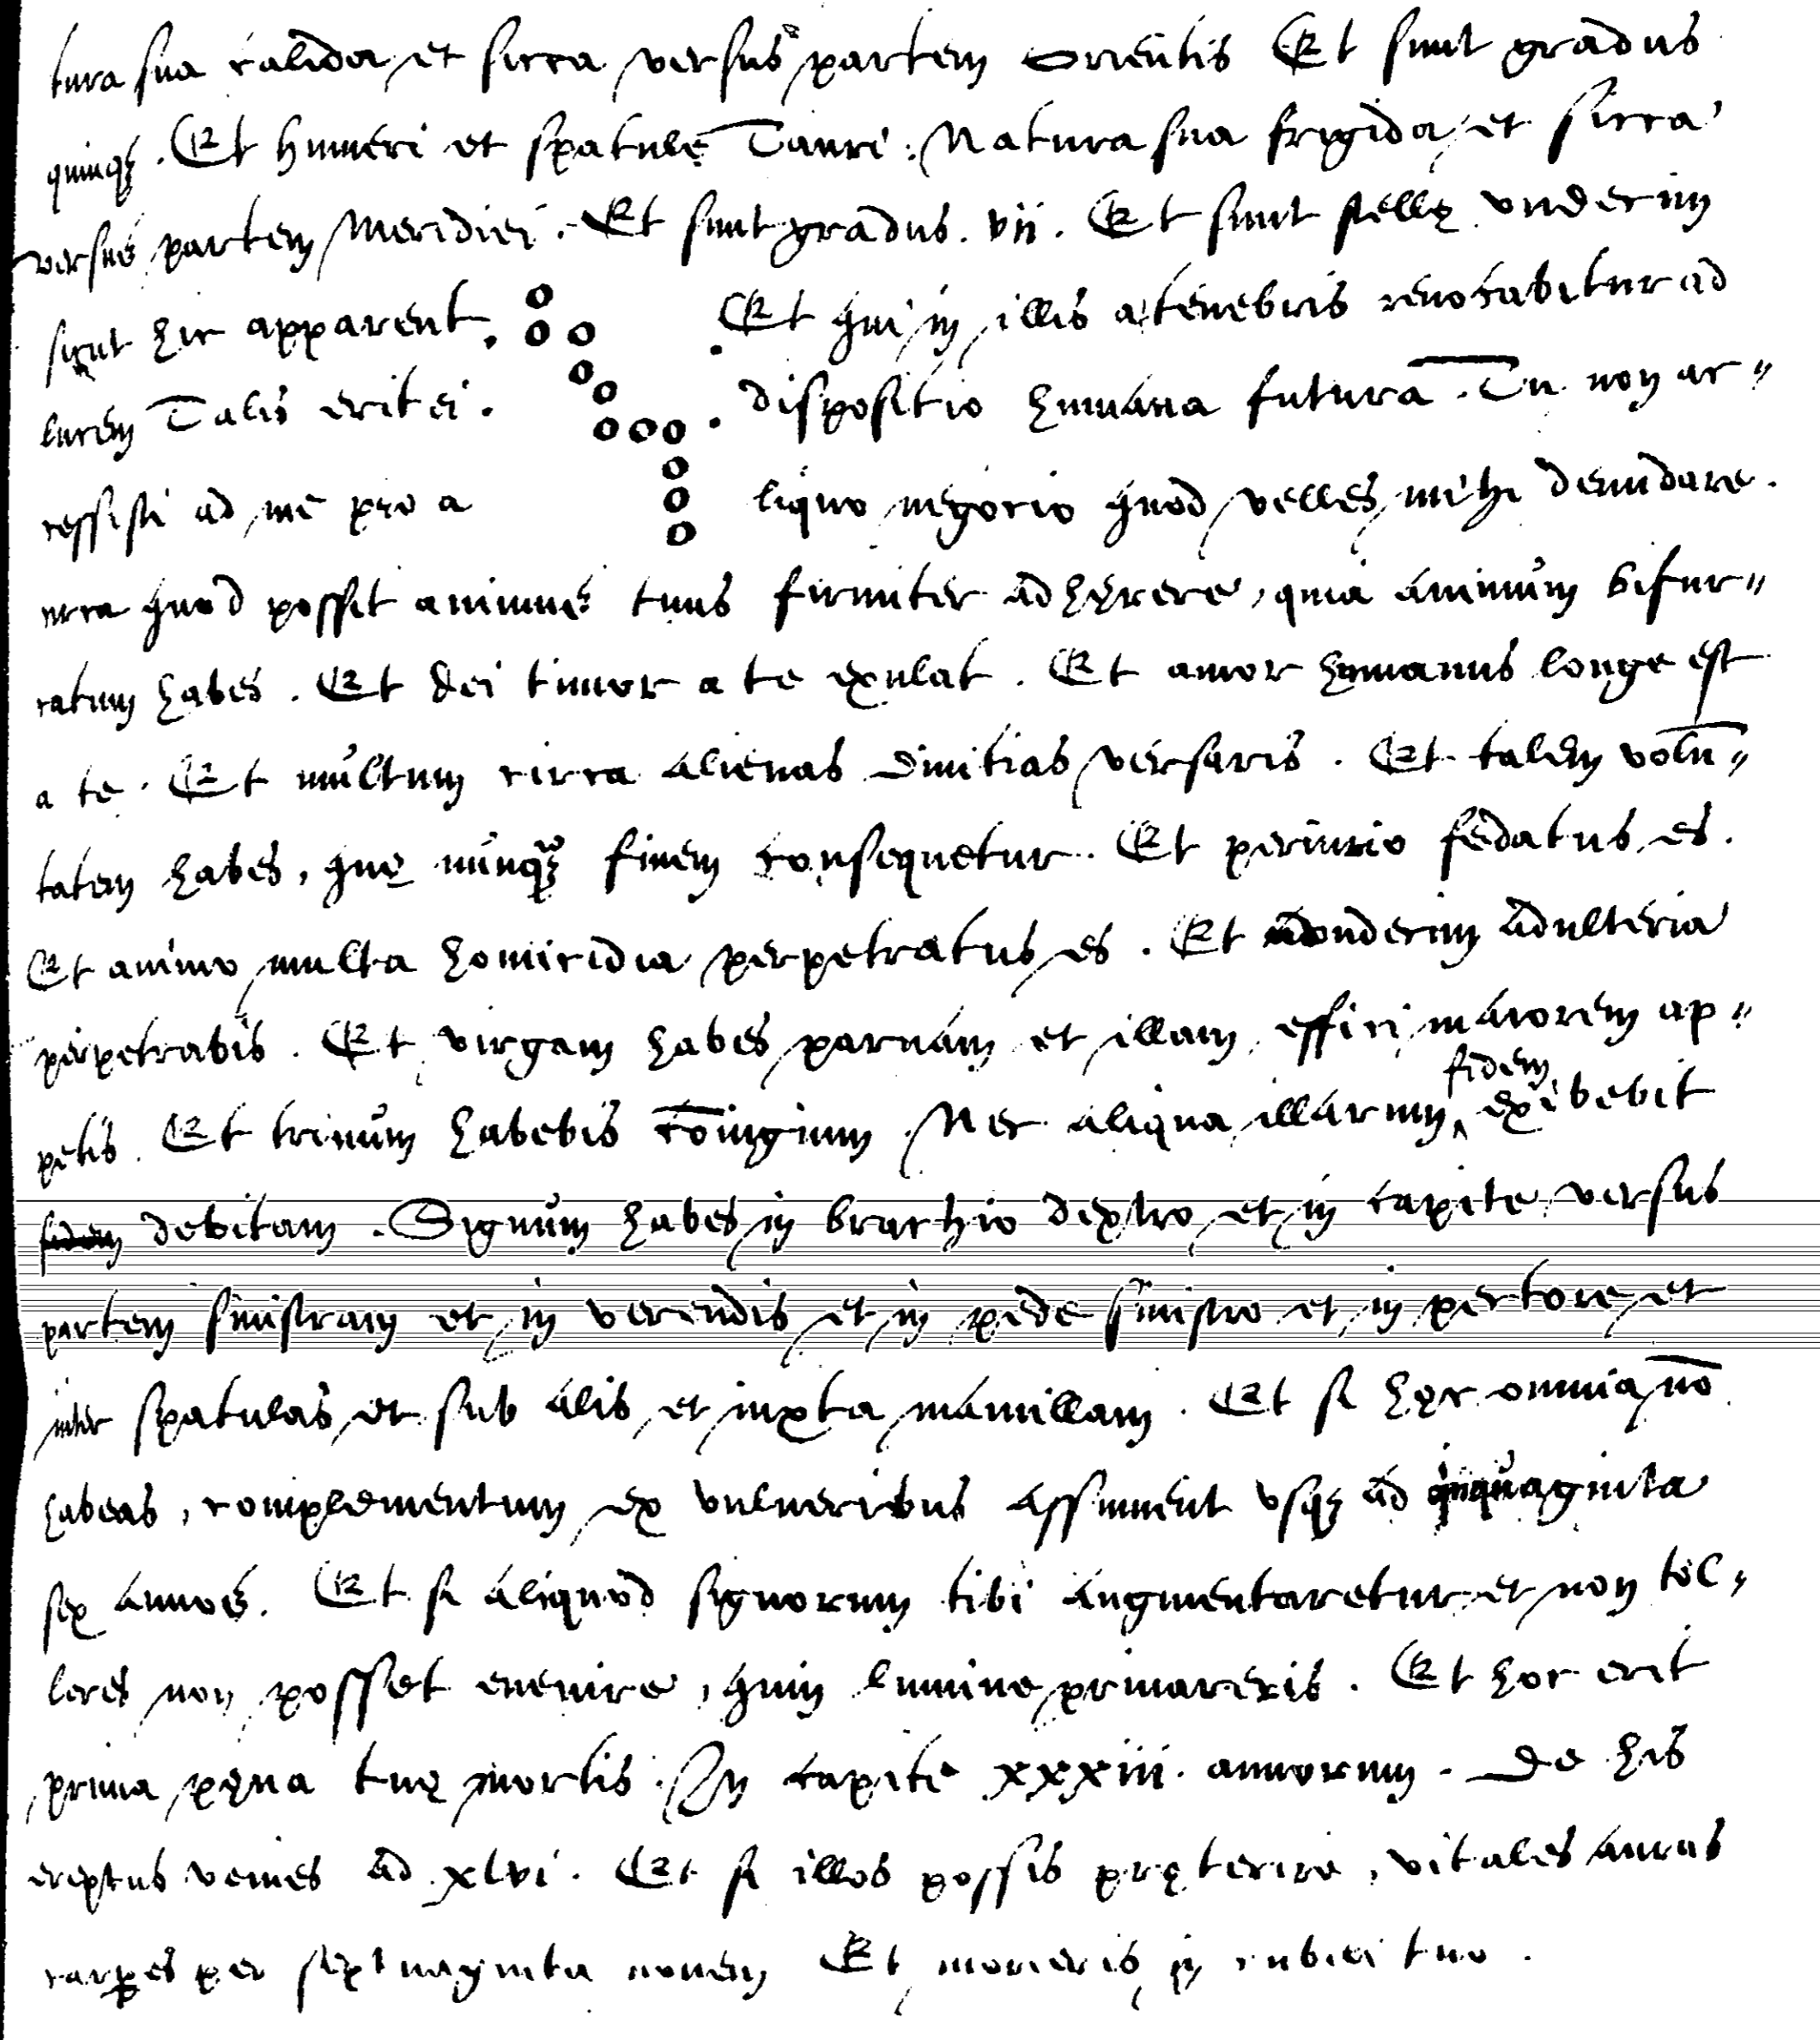 tura sua calida et sicca versus partem Orientis Et sunt gradus
quinq₃. Et humeri et spatulę Tauri: Natura sua frigida, et sicca
versus partem Meridiei. Et sunt gradus. vii. Et sunt stellę vndecim
sicut hic apparent. . Et qui in illis a tenebris reuocabitur ad
lucem Talis erit ei. . dispositio humana futura. Tu non ac〃
cessisti ad me pro a liquo negocio quod velles mihi denudare.
circa quod possit animus tuus firmiter adhęrere, quia animum bifur〃
catum habes. Et dei timor a te exulat. Et amor humanus longe est
a te. Et multum circa alienas diuitias versaris. Et talem volū〃
tatem habes, quę nunq₃ finem consequetur. Et periurio fedatus es.
Et animo multa homicidia perpetratus es. Et vndecim adulteria
perpetrabis. Et virgam habes paruam et illam effici maiorem ap〃
petis. Et trinum habebis cōiugium. Nec aliqua illarum fidem exibebit
fidem debitam. Signum habes in brachio dextro et in capite versus
partem sinistram et in verendis et in pede sinistro et in pectore et
inter spatulas et sub alis et iuxta mamillam. Et si hęc omnia nō
habeas, complementum ex vulneribus assument vsq₃ ad quinquaginta
sex annos. Et si aliquod signorum tibi augmentaretur et non tol〃
leres non posset euenire, quin lumine priuareris. Et hoc erit
prima pęna tuę mortis. In capite xxxiii. annorum. De his
ereptus venies ad xlvi. Et si illos possis pręterire, vitales auras
carpes per septuaginta nouem Et morieris in cubiei tuo.